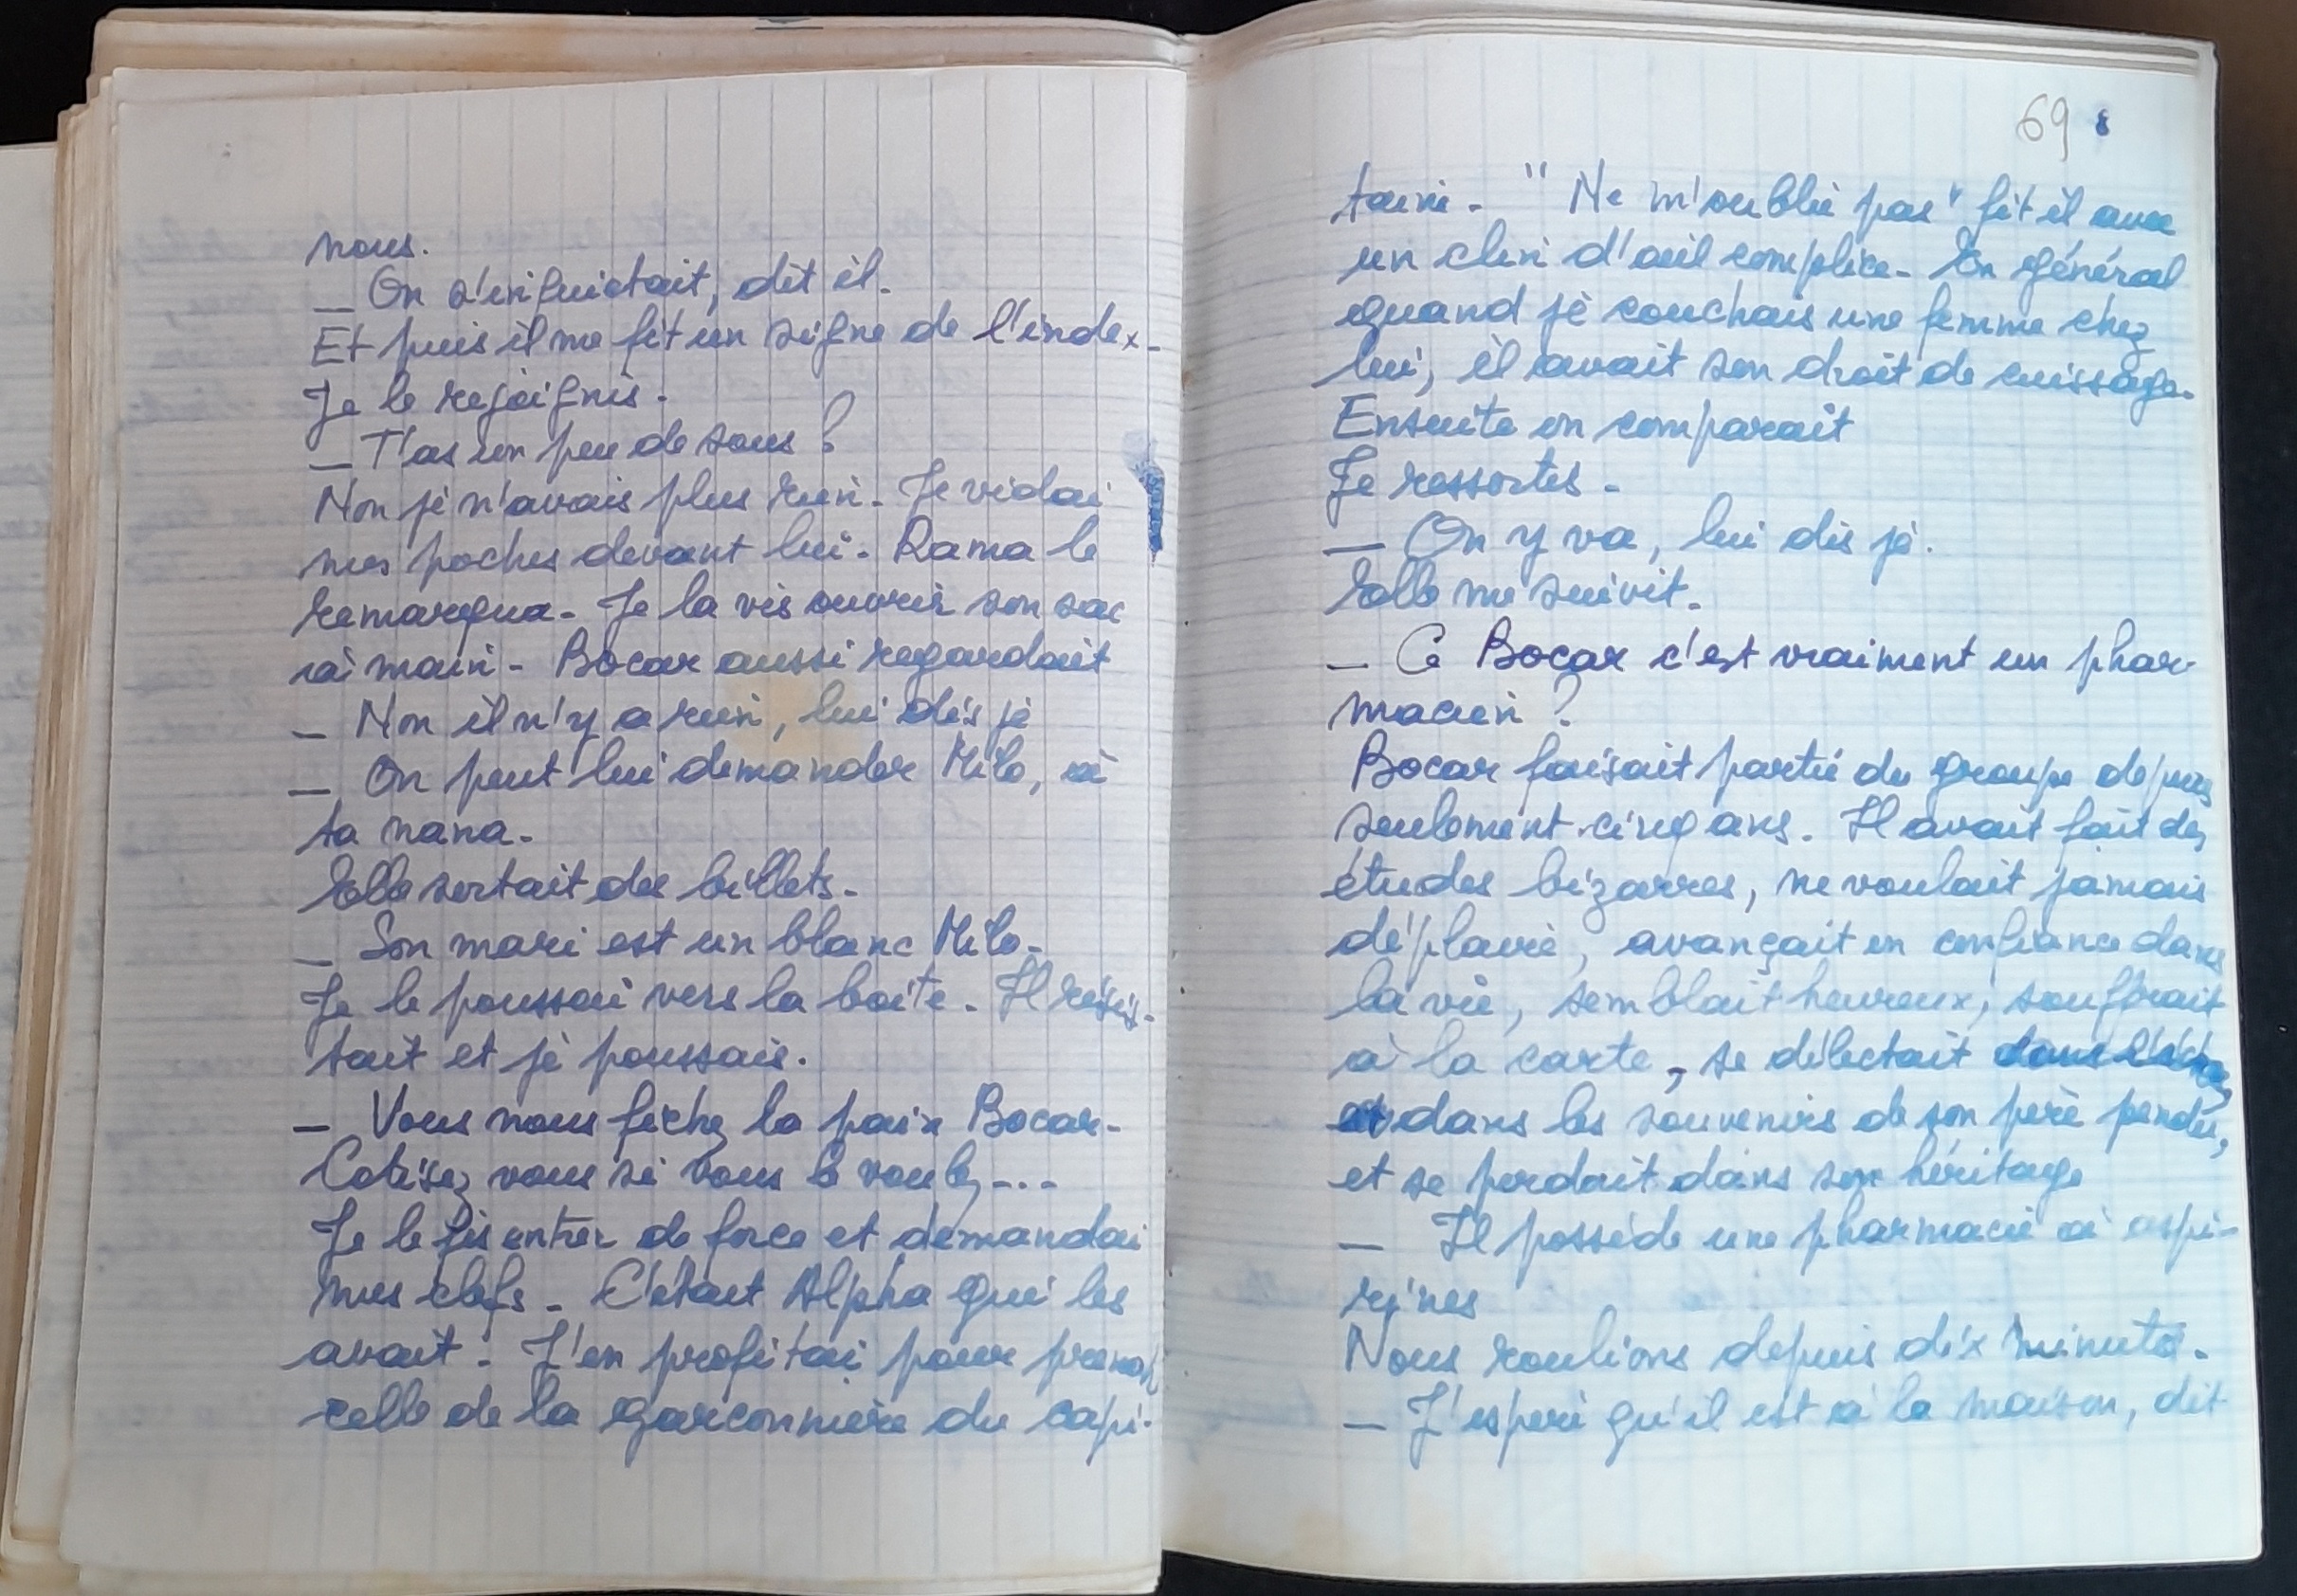 nous.
— On s'inquiétait, dit il.
Et puis il me fit un signe de l'index.
Je le rejoignis.
— T'as un peu de sous ?
Non je n'avais plus rien. Je vidai
mes poches devant lui. Rama le
remarqua. Je la vis ouvrir son sac
à main. Bocar aussi regardait
— Non il n'y a rien, lui dis je
— On peut lui demander Milo, à
ta nana.
Elle sortait des billets.
— Son mari est un blanc Milo.
Je le poussai vers la boite. Il résis-
tait et je poussais.
— Vous nous fichez la paix Bocar.
Cotisez vous si vous le voulez...
Je le fis entrer de force et demandai
mes clefs. C'était Alpha qui les
avait. J'en profitai pour prendre
celle de la garconnière du capi-
69
taine. " Ne m'oublie pas " fit il avec
un clin d'œil complice. En général
quand je couchais une femme chez
lui, il avait son droit de cuissage.
Ensuite on comparait
Je ressortis.
— On y va, lui dis je.
Elle me suivit.
— Ce Bocar c'est vraiment un phar-
macien ?
Bocar faisait partie du groupe depuis
seulement cinq ans. Il avait fait des
études bizarres, ne voulait jamais
déplaire, avançait en confiance dans
la vie, semblait heureux, souffrait
à la carte, se délectait
dans les souvenirs de son père pendu,
et se perdait dans son héritage
— Il possède une pharmacie à aspi-
rines
Nous roulions depuis dix minutes.
— J'espère qu'il est à la maison, dit